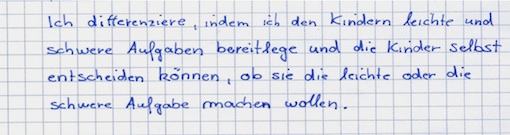 Ich differenziere, indem ich den Kindern leichte und
schwere Aufgaben bereitlege und die Kinder selbst
entscheiden können, ob sie die leichte oder die
schwere Aufgabe machen wollen.